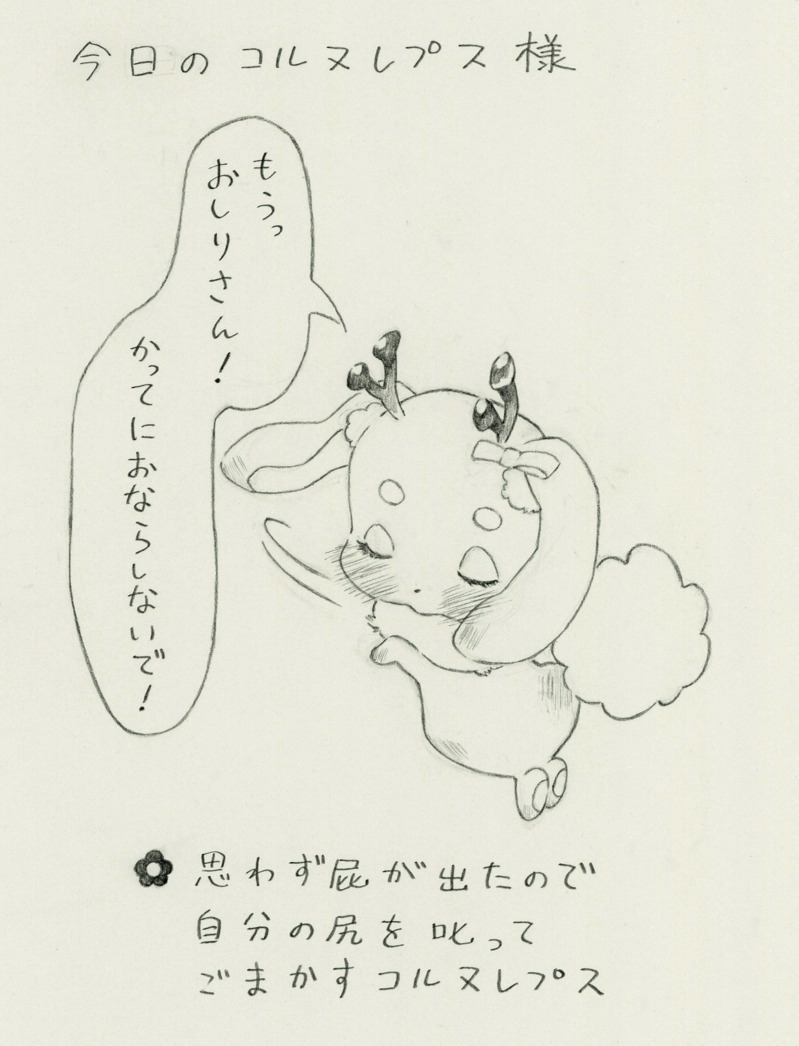 今日のコルヌレプス様
もうっ
おしりさん!
かってにおならしないで!
思わず屁が出たので
自分の尻を叱って
ごまかすコルヌレプス